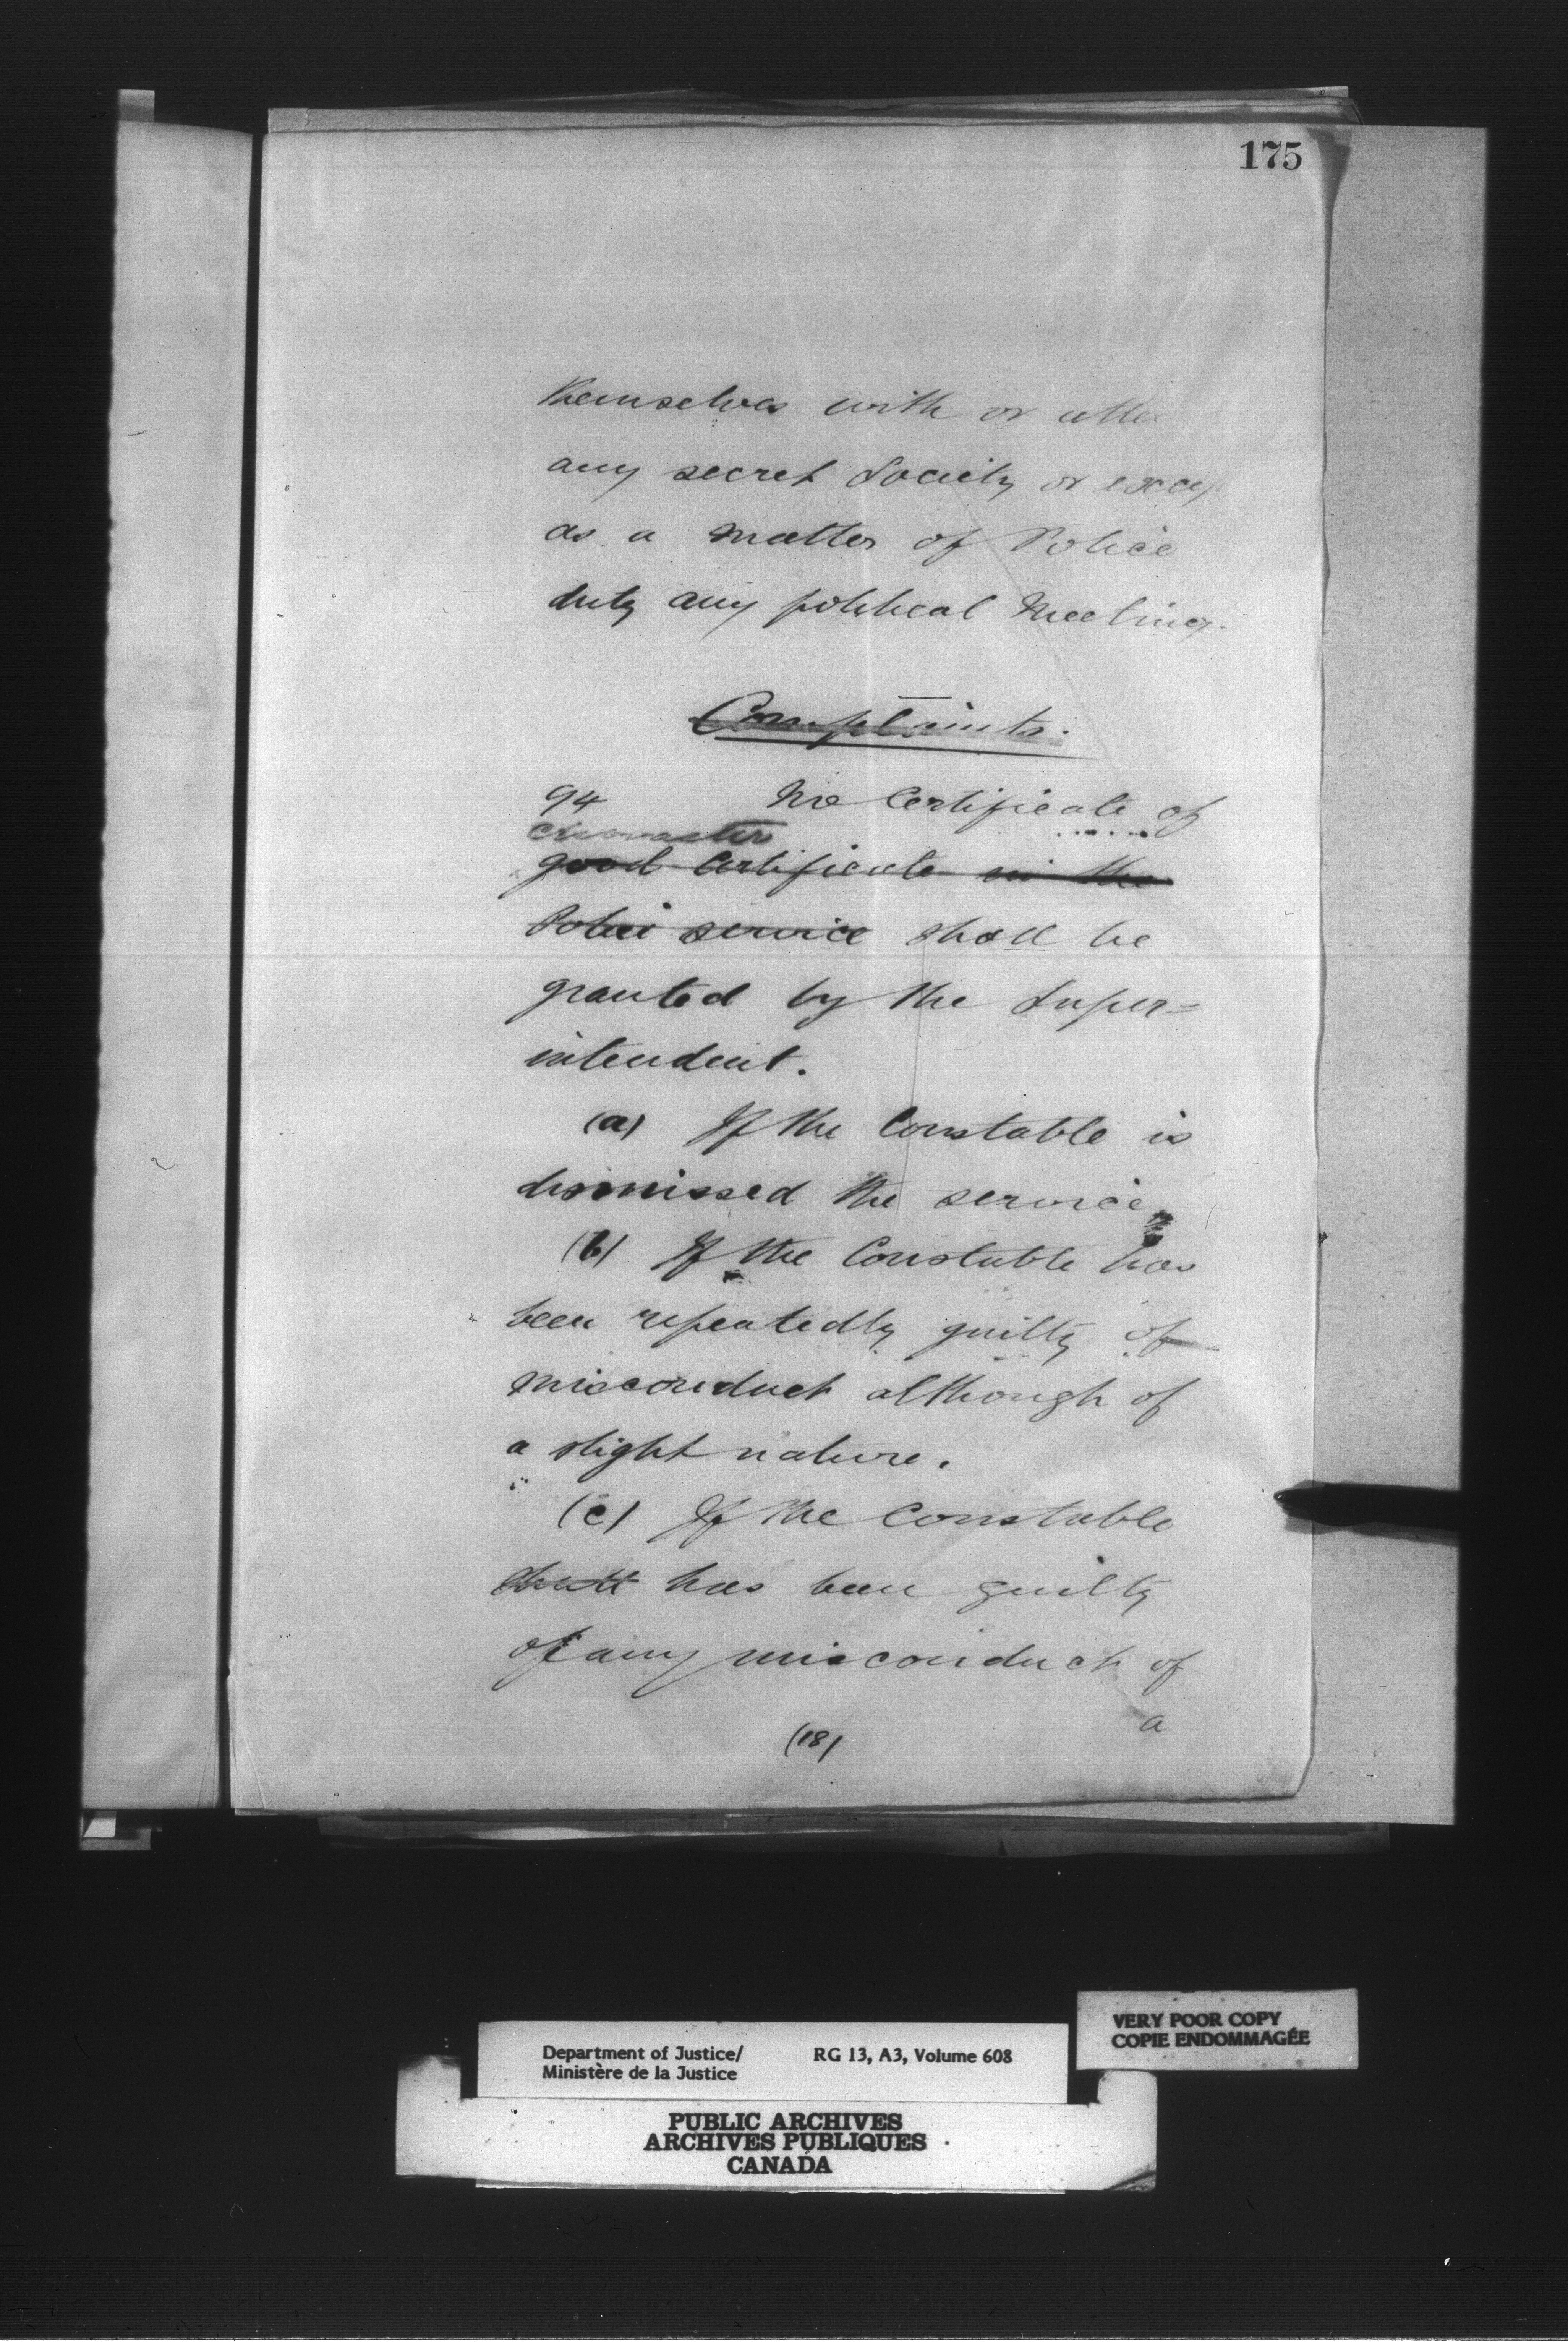 175
themselves with or
any secret Society or
as a matter of Police
duty any political Meeting.
Complaints.
94 No Certificate of
character
good Certificate in the
Police service shall be
granted by the Super=
intendent.
(a) If the Constable is
dismissed the service.
(b) If the Constable has
been repeatedly guilty of
misconduct although of
a slight nature.
(c) If the Constable
shall has been guilty
of any misconduct of
a
(18)
VERY POOR COPY
COPIE ENDOMMAGÉE
Department of Justice/ RG 13, A3, Volume 608
Ministère de la Justice
PUBLIC ARCHIVES
ARCHIVES PUBLIQUES
CANADA